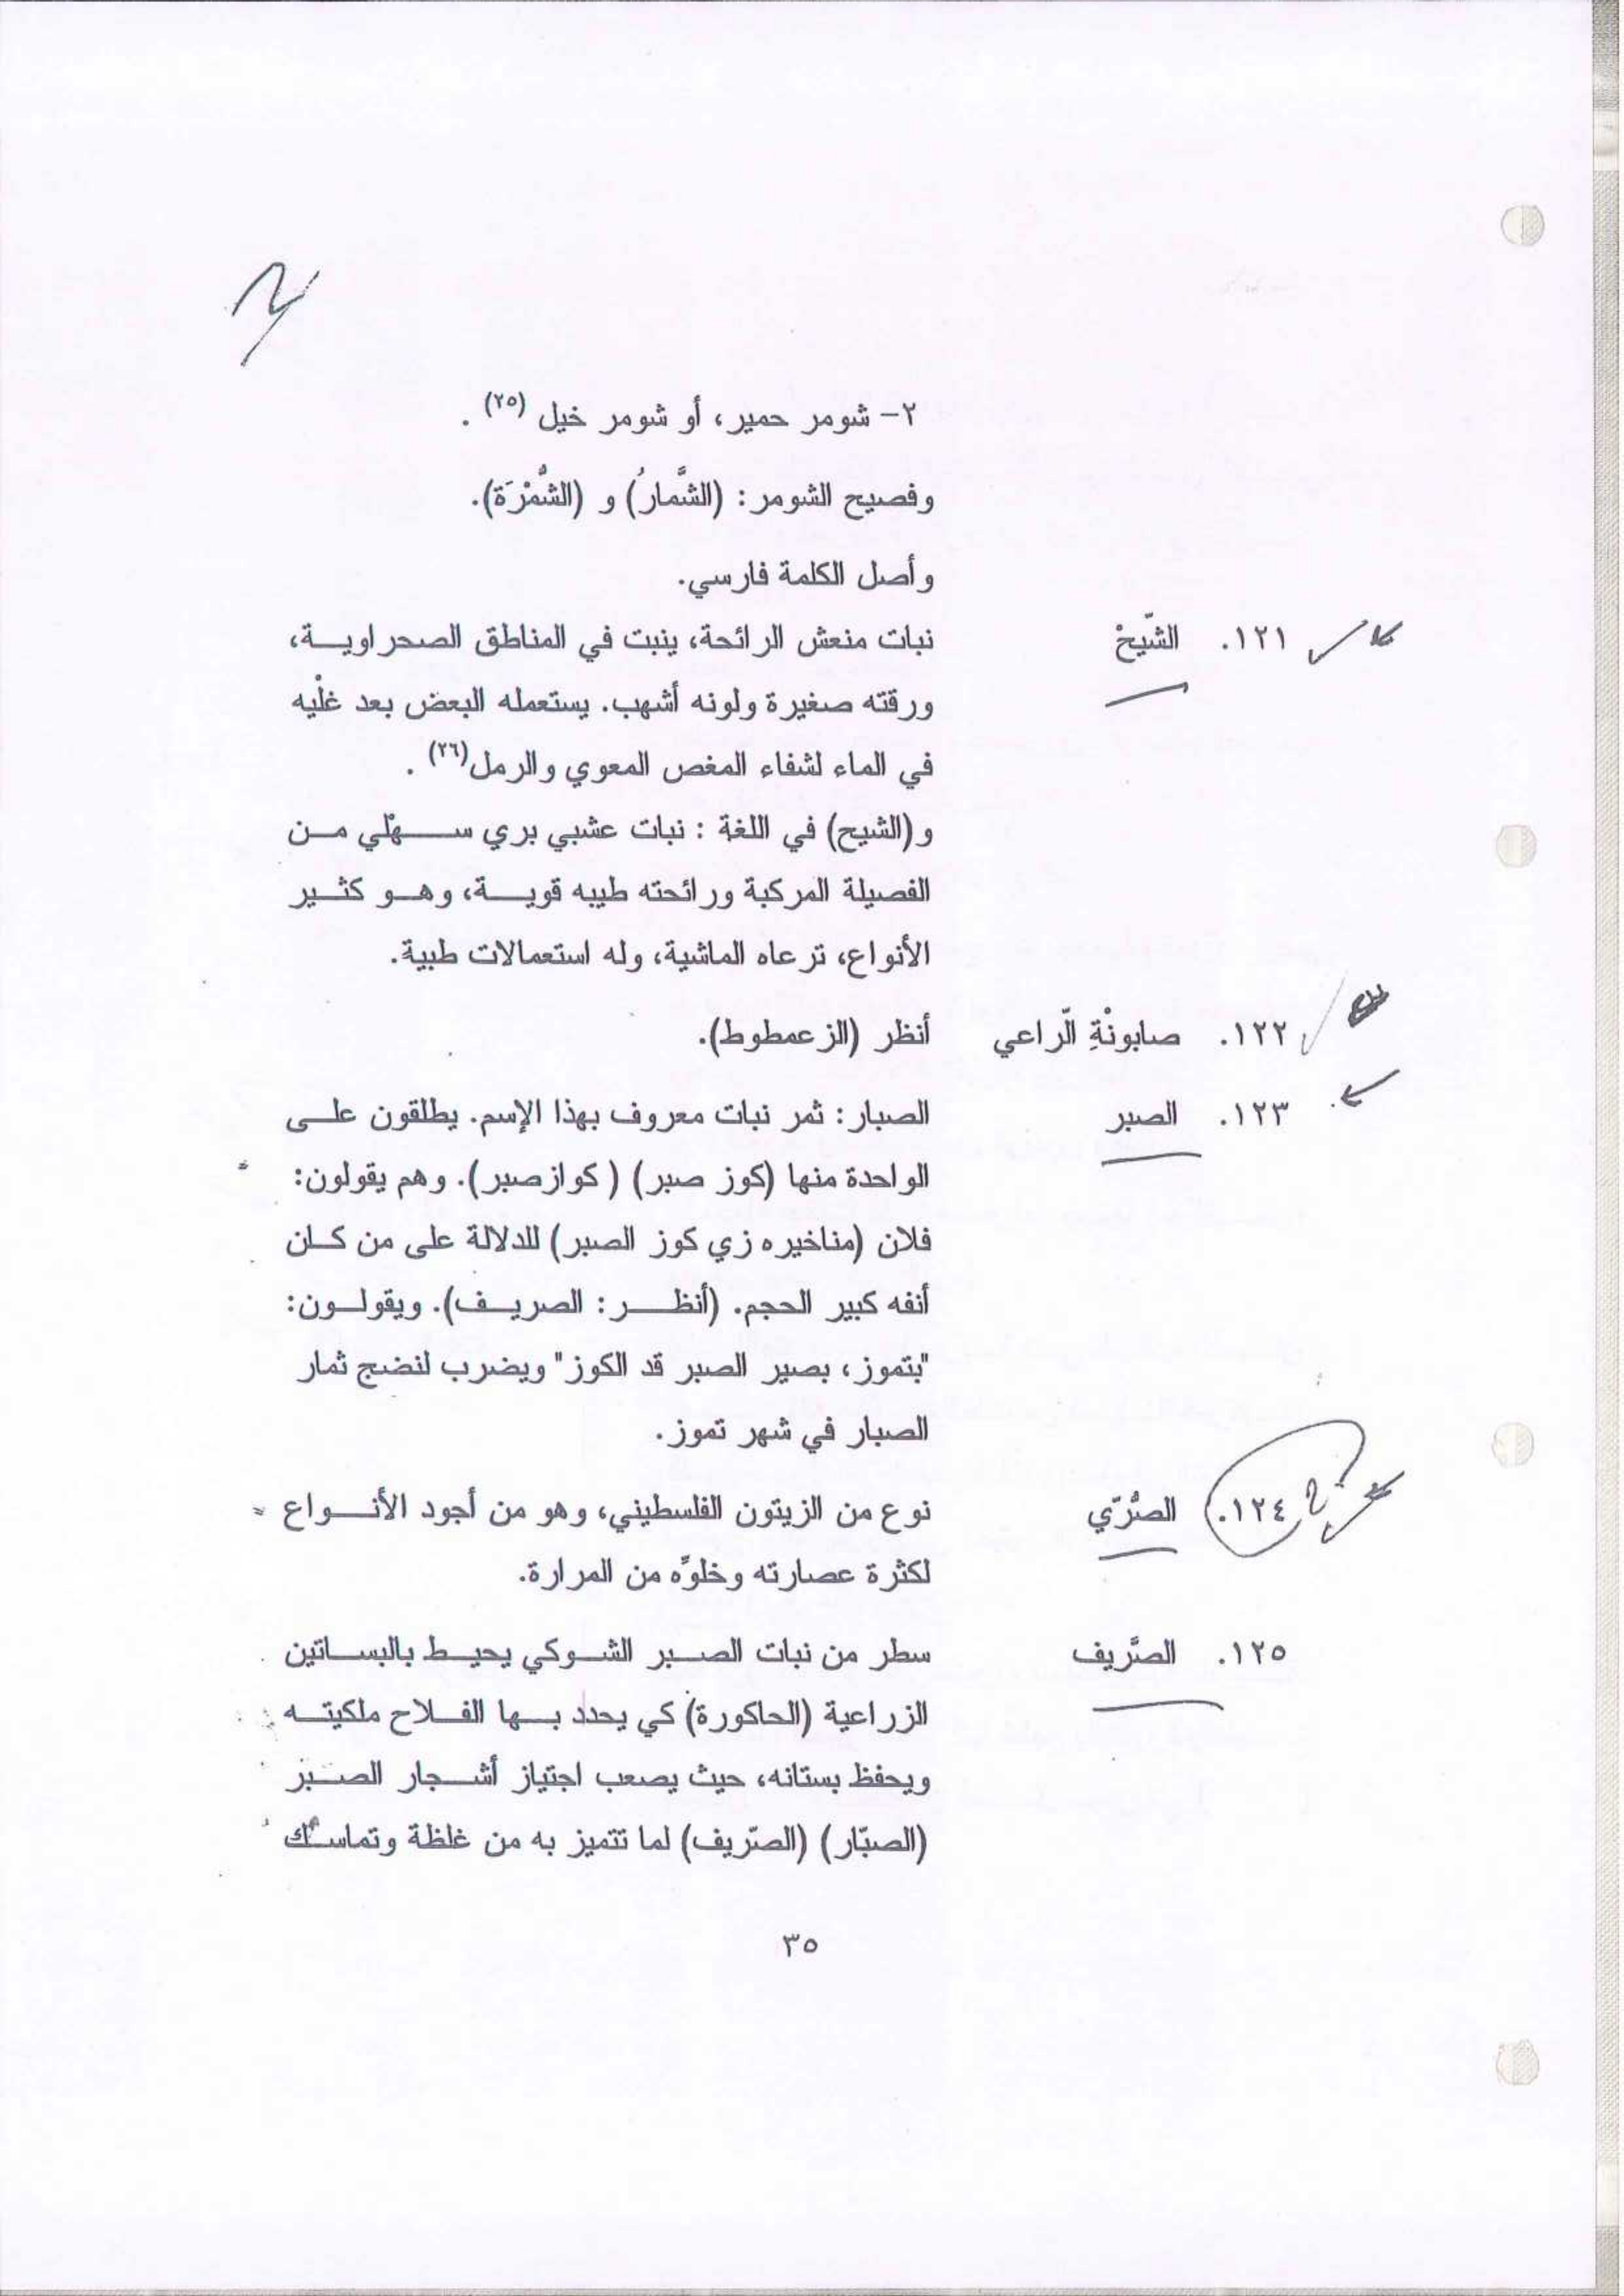 ٢- شومر حمير، أو شومر خيل (٢٥) .
وفصيح الشومر: (الشَّمارُ) و (الشُّمْرَة).
وأصل الكلمة فارسي.
١٢١. الشّيحْ نبات منعش الرائحة، ينبت في المناطق الصحراويـــة،
ورقته صغيرة ولونه أشهب. يستعمله البعض بعد غلْيه
في الماء لشفاء المغص المعوي والرمل(٢٦) .
و(الشيح) في اللغة : نبات عشبي بري ســـهْلي مــن
الفصيلة المركبة ورائحته طيبه قويـــة، وهــو كثــير
الأنواع، ترعاه الماشية، وله استعمالات طبية.
١٢٢. صابونْةِ الّراعي أنظر (الزعمطوط).
١٢٣. الصبر الصبار: ثمر نبات معروف بهذا الإسم. يطلقون علــى
الواحدة منها (كوز صبر) ( كوازصبر). وهم يقولون:
فلان (مناخيره زي كوز الصبر) للدلالة على من كــان
أنفه كبير الحجم. (أنظـــر: الصريــف). ويقولــون:
"بتموز، بصير الصبر قد الكوز" ويضرب لنضج ثمار
الصبار في شهر تموز.
١٢٤. الصُّرّي نوع من الزيتون الفلسطيني، وهو من أجود الأنـــواع
لكثرة عصارته وخلوِّه من المرارة.
١٢٥. الصَّريف سطر من نبات الصــبر الشــوكي يحيــط بالبســاتين
الزراعية (الحاكورة) كي يحدد بــها الفــلاح ملكيتــه
ويحفظ بستانه، حيث يصعب اجتياز أشــجار الصــبر
(الصبّار) (الصّريف) لما تتميز به من غلظة وتماسك
٣٥